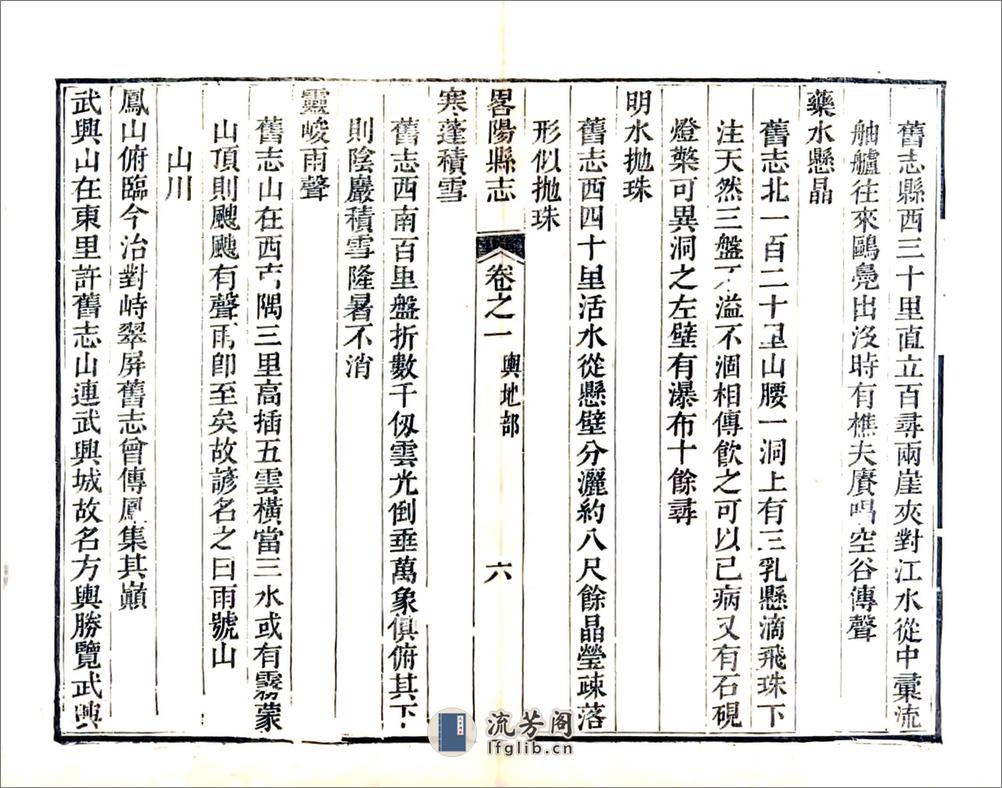 舊志縣西三十里直立百尋兩崖夾對江水從中彙流
舳艫往來鷗鳧出沒時有樵夫賡唱空谷傳聲
藥水懸晶
舊志北一百二十里山腰一洞上有三乳懸滴飛珠下
注天然三盤不溢不涸相傳飲之可以已病又有石硯
燈檠可異洞之左壁有瀑布十餘尋
明水拋珠
舊志西四十里活水從懸壁分灑約八尺餘晶瑩疎落
形似拋珠
畧陽縣志
卷之一
輿地部
六
寒蓬積雪
舊志西南百里盤折數千仭雲光倒垂萬象俱俯其下
則陰巖積雪隆暑不消
靈峻雨聲
舊志山在西南隅三里高插五雲橫當三水或有霧蒙
山頂則颼颼有聲雨卽至矣故諺名之曰雨號山
山川
鳳山俯臨今治對峙翠屏舊志曾傳鳳集其巔
武興山在東里許舊志山連武興城故名方輿勝覽武興
流芳阁
lfglib.cn